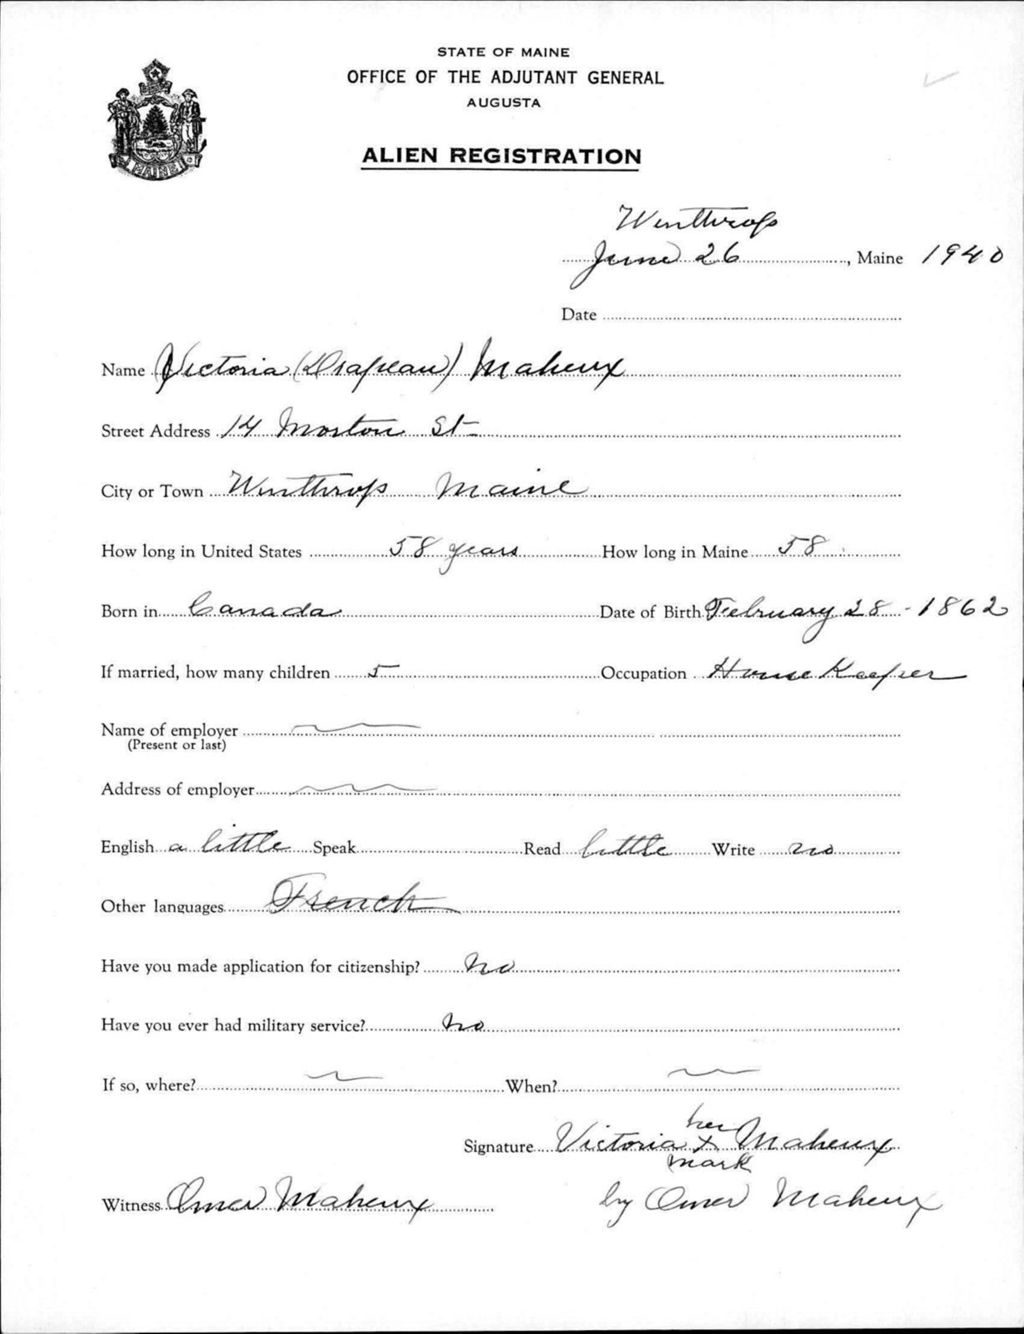 STATE OF MAINE
OFFICE OF THE ADJUTANT GENERAL
AUGUSTA
MAINE
ALIEN REGISTRATION
Winthrop
June 26, Maine 1940
Date
Name Victoria (Drapeau) Maheux
Street Address 14 Morton St
City or Town Winthrop Maine
How long in United States 58 years How long in Maine 58
Born in Canada Date of Birth February 28 - 1862
If married, how many children 5 Occupation House Keeper
Name of employer
(Present or last)
Address of employer
English a little Speak Read little Write no
Other languages French
Have you made application for citizenship? No
Have you ever had military service? no
If so, where? When?
her
Signature Victoria X Maheux
mark
Witness Omer Maheux by Omer Maheux